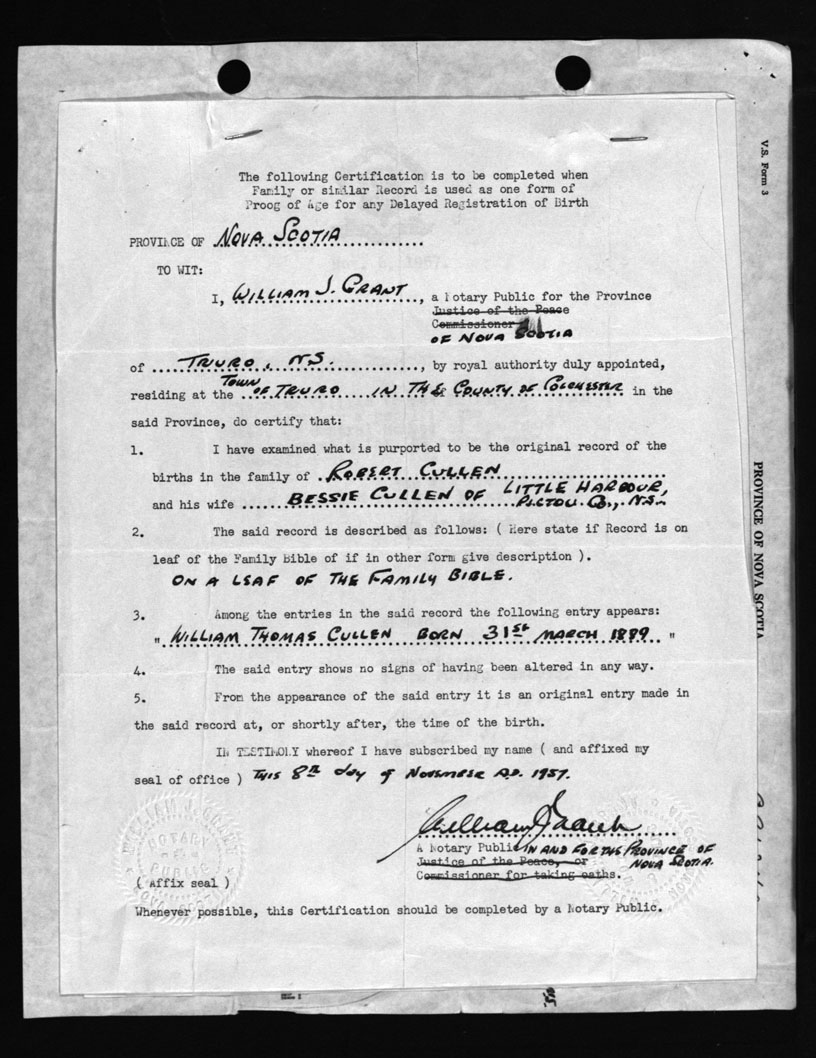 The following Certification is to be completed when
Family or similar Record is used as one form of
Proog of Age for any Delayed Registration of Birth
PROVINCE OF NOVA SCOTIA
TO WIT:
I, WILLIAM J. GRANT, a Notary Public for the Province
Justice of the Peace
Commissioner
OF NOVA SCOTIA
of TRURO, N.S., by royal authority duly appointed,
residing at the TOWN OF TRURO IN THE COUNTY OF COLCHESTER in the
said Province, do certify that:
1. I have examined what is purported to be the original record of the
births in the family of ROBERT CULLEN
and his wife BESSIE CULLEN OF LITTLE HARBOUR,
PICTOU Co., N.S.
2. The said record is described as follows: ( Here state if Record is on
leaf of the Family Bible of if in other form give description ).
ON A LEAF OF THE FAMILY BIBLE.
3. Among the entries in the said record the following entry appears:
" WILLIAM THOMAS CULLEN BORN 31st MARCH 1889 "
4. The said entry shows no signs of having been altered in any way.
5. From the appearance of the said entry it is an original entry made in
the said record at, or shortly after, the time of the birth.
IN TESTIMONY whereof I have subscribed my name ( and affixed my
seal of office ) THIS 8th day of NOVEMBER A.D. 1957.
William J Grant
A Notary Public IN AND FOR THE PROVINCE OF
Justice of the Peace, or NOVA SCOTIA.
Commissioner for taking oaths.
WILLIAM J. GRANT
NOTARY
PUBLIC
( Affix seal )
Whenever possible, this Certification should be completed by a Notary Public.
V.S. Form 3
PROVINCE OF NOVA SCOTIA